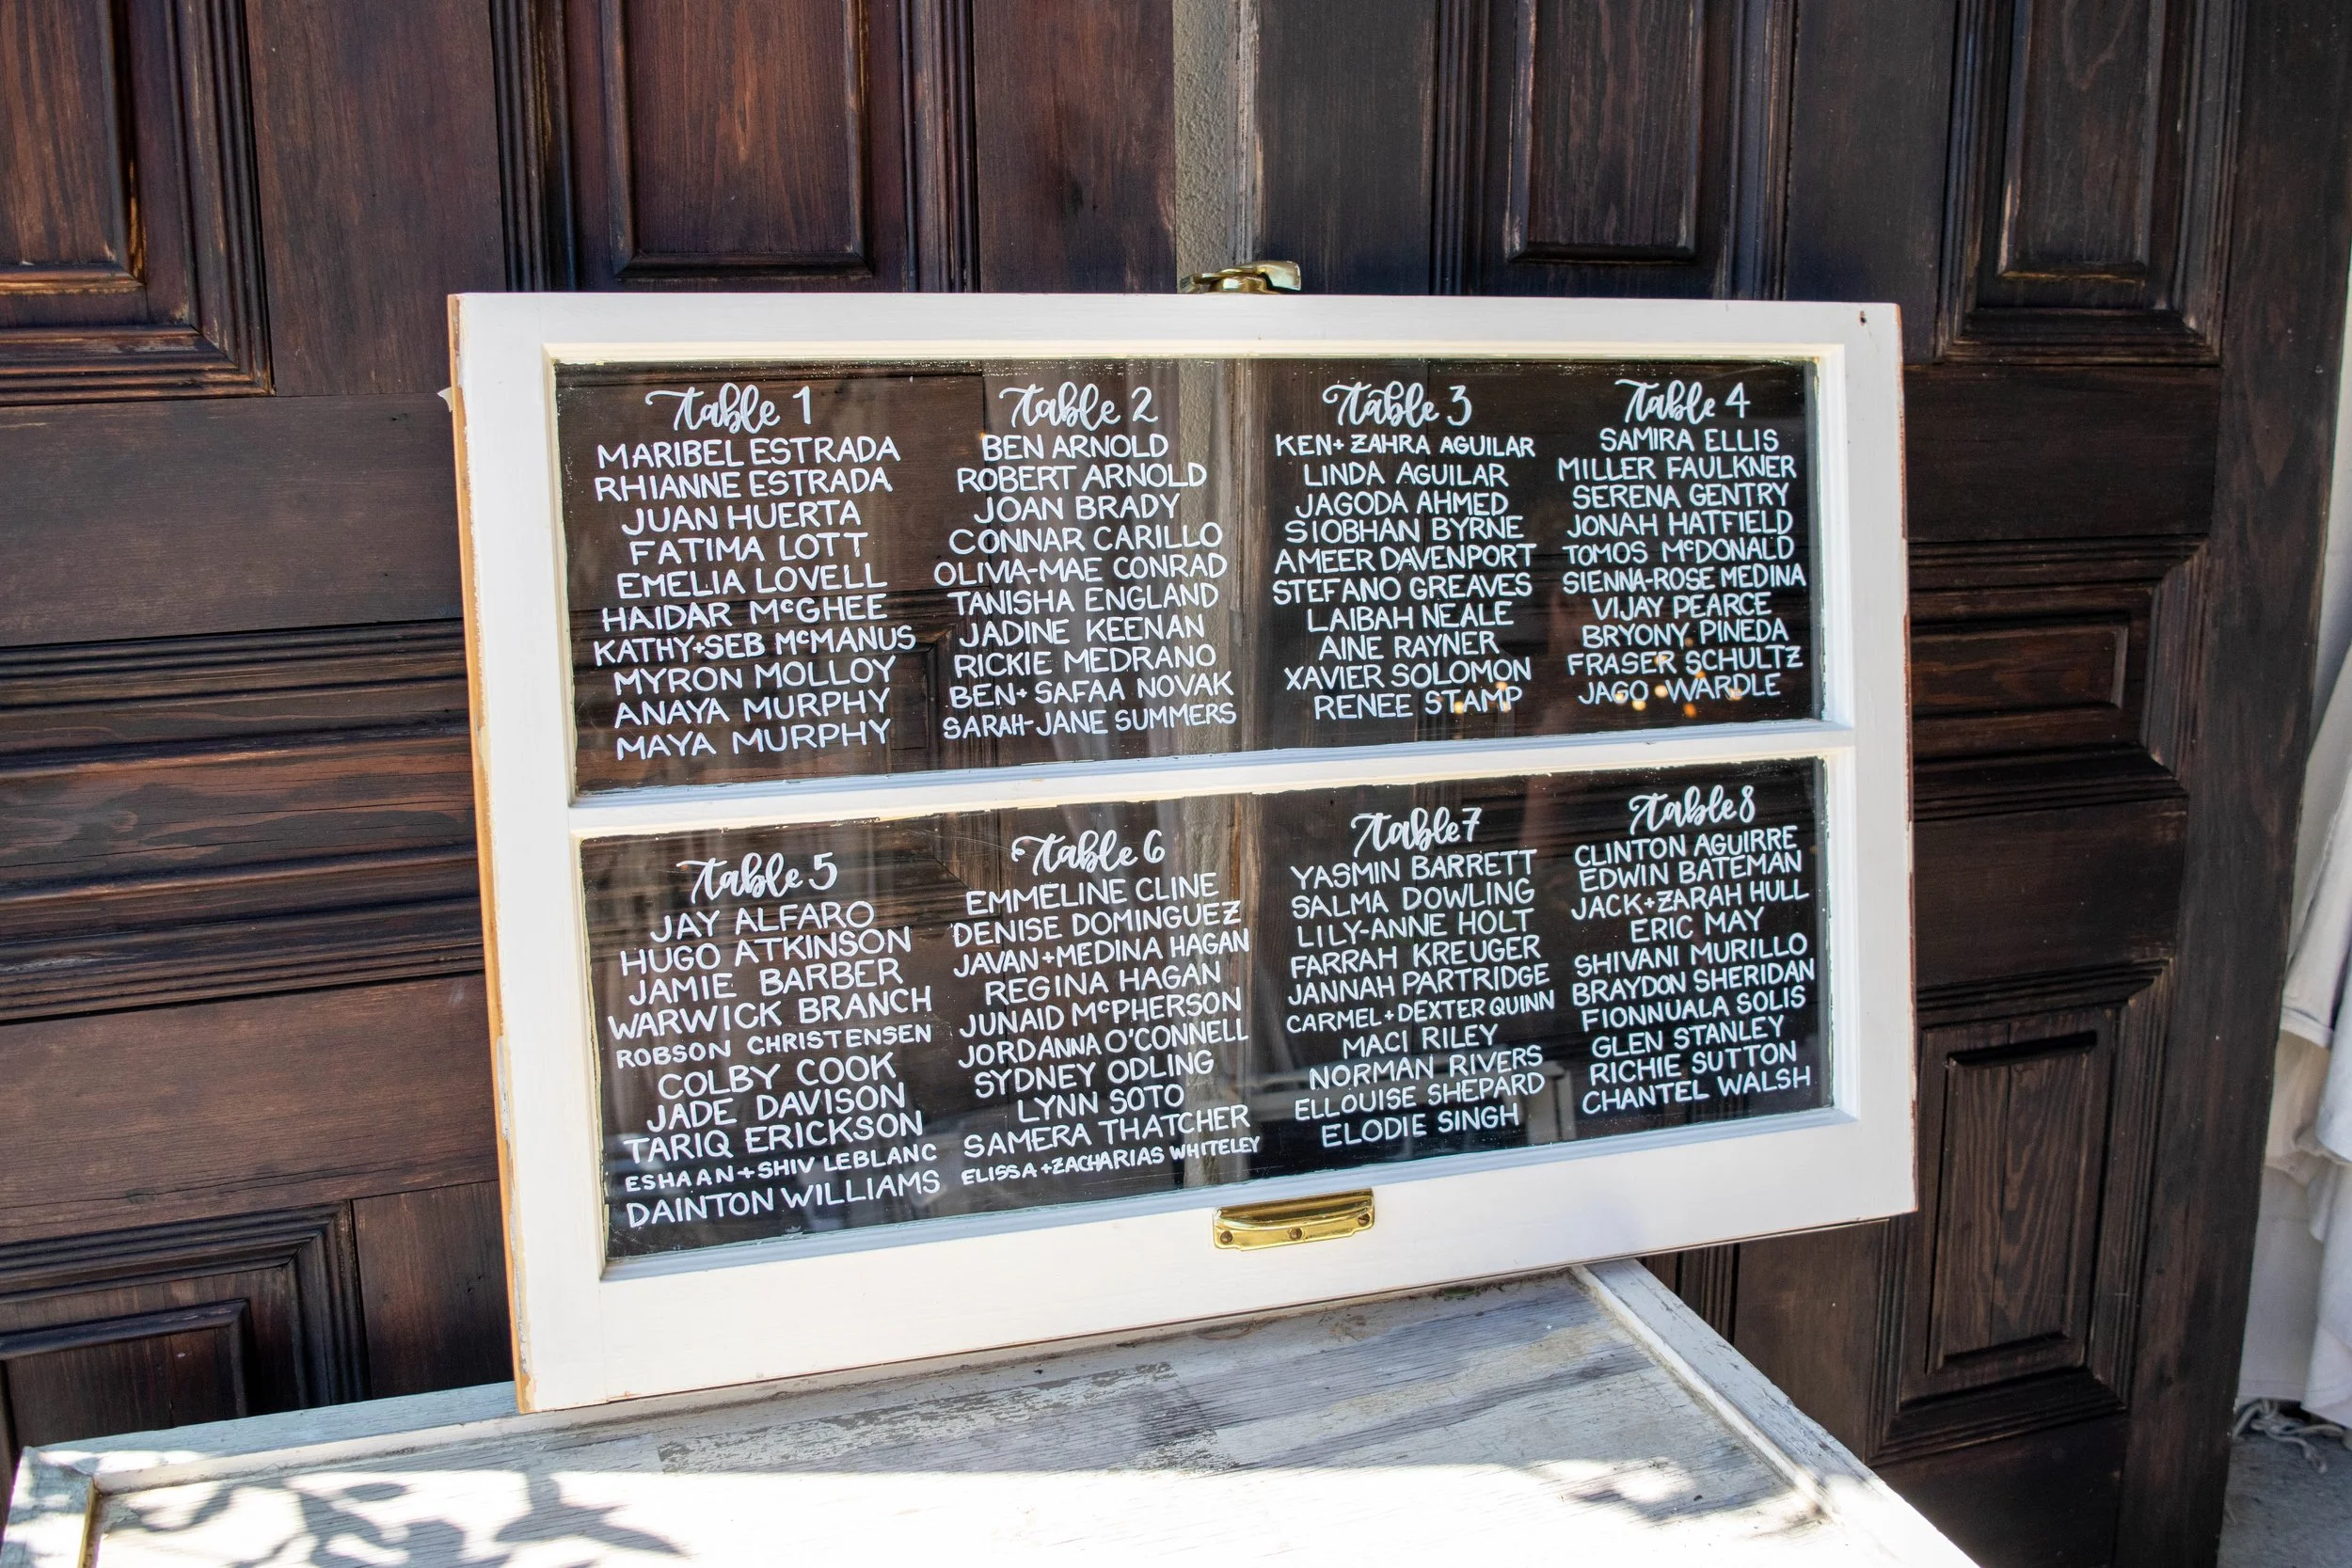 Table 1
MARIBEL ESTRADA
RHIANNE ESTRADA
JUAN HUERTA
FATIMA LOTT
EMELIA LOVELL
HAIDAR McGHEE
KATHY+SEB McMANUS
MYRON MOLLOY
ANAYA MURPHY
MAYA MURPHY
Table 2
BEN ARNOLD
ROBERT ARNOLD
JOAN BRADY
CONNAR CARILLO
OLIVIA-MAE CONRAD
TANISHA ENGLAND
JADINE KEENAN
RICKIE MEDRANO
BEN+ SAFAA NOVAK
SARAH-JANE SUMMERS
Table 3
KEN+ ZAHRA AGUILAR
LINDA AGUILAR
JAGODA AHMED
SIOBHAN BYRNE
AMEER DAVENPORT
STEFANO GREAVES
LAIBAH NEALE
AINE RAYNER
XAVIER SOLOMON
RENEE STAMP
Table 4
SAMIRA ELLIS
MILLER FAULKNER
SERENA GENTRY
JONAH HATFIELD
TOMOS McDONALD
SIENNA-ROSE MEDINA
VIJAY PEARCE
BRYONY PINEDA
FRASER SCHULTZ
JAGO WARDLE
Table 5
JAY ALFARO
HUGO ATKINSON
JAMIE BARBER
WARWICK BRANCH
ROBSON CHRISTENSEN
COLBY COOK
JADE DAVISON
TARIQ ERICKSON
ESHAAN+SHIV LEBLANC
DAINTON WILLIAMS
Table 6
EMMELINE CLINE
DENISE DOMINGUEZ
JAVAN+MEDINA HAGAN
REGINA HAGAN
JUNAID McPHERSON
JORDANNA O'CONNELL
SYDNEY ODLING
LYNN SOTO
SAMERA THATCHER
ELISSA+ZACHARIAS WHITELEY
Table 7
YASMIN BARRETT
SALMA DOWLING
LILY-ANNE HOLT
FARRAH KREUGER
JANNAH PARTRIDGE
CARMEL+DEXTER QUINN
MACI RILEY
NORMAN RIVERS
ELLOUISE SHEPARD
ELODIE SINGH
Table 8
CLINTON AGUIRRE
EDWIN BATEMAN
JACK+ZARAH HULL
ERIC MAY
SHIVANI MURILLO
BRAYDON SHERIDAN
FIONNUALA SOLIS
GLEN STANLEY
RICHIE SUTTON
CHANTEL WALSH